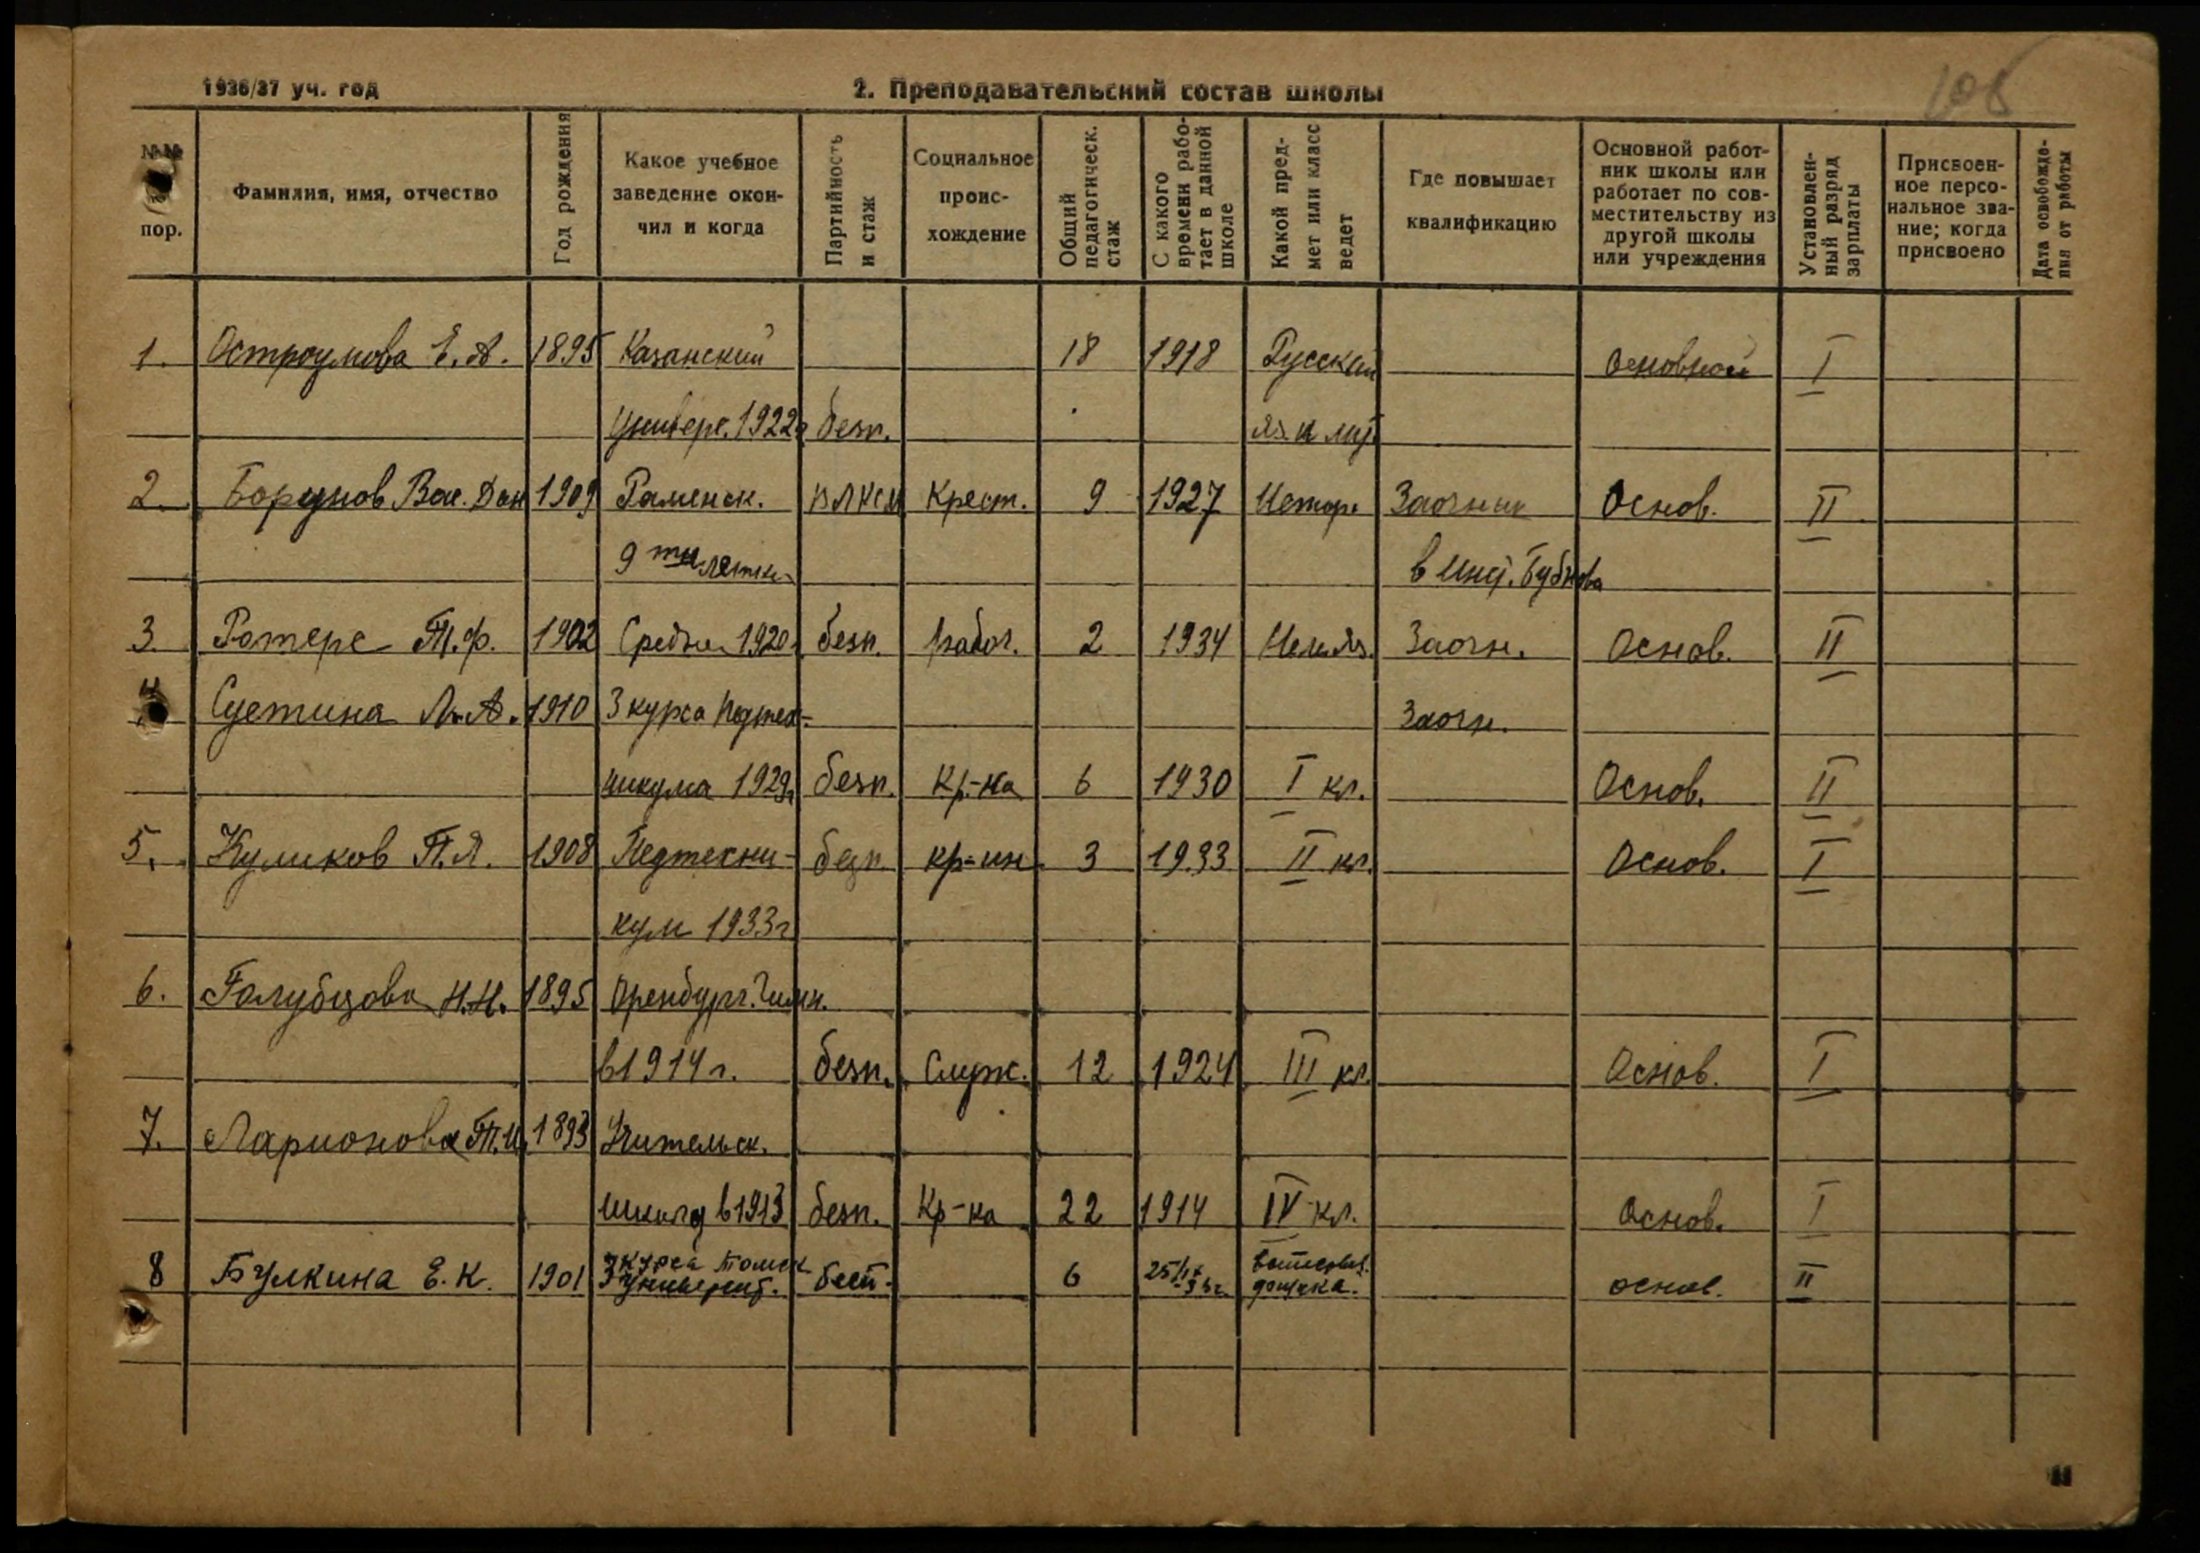 1936/37 уч. год
2. Преподавательский состав школы
№№ пор.
Фамилия, имя, отчество
Год рождения
Какое учебное заведение окончил и когда
Партийность и стаж
Социальное происхождение
Общий педагогическ. стаж
С какого времени работает в данной школе
Какой предмет или класс ведет
Где повышает квалификацию
Основной работник школы или работает по совместительству из другой школы или учреждения
Установленный разряд зарплаты
Присвоенное персональное звание; когда присвоено
Дата освобождения от работы
1. Остроумова Е. А. 1895 Казанский 18 1918 Русский основной I
Универс. 1922г безп. яз. и лит
2. Борунов Вас. Дан 1909 Раменск. ВЛКСМ Крест. 9 1927 Истор. Заочник Основ. II
9 тилетк. в инт. Бубнова
3. Ротерс Т. Ф. 1902 Средн. 1920 безп. рабоч. 2 1934 Нем.яз. Заочн. Основ. II
4 Суетина Л. А. 1910 3 курса Педтех- Заочн.
никума 1929г безп. Кр-ка 6 1930 I кл. Основ. II
5. Куликов П. Я. 1908 Педтехни- безп. кр-ин 3 1933 II кл. Основ. I
кум 1933г
6. Голубцова Н. Н. 1895 Оренбург. Гимн.
в 1914 г. безп. Служ. 12 1924 III кл. Основ. I
7. Ларионова Т. И. 1893 Учительск.
школу в 1913 безп. Кр-ка 22 1914 IV кл. Основ. I
8 Булкина Е. К. 1901 3 курса Томск бесп. 6 25/IX основ. II
Университ. 36г.
11